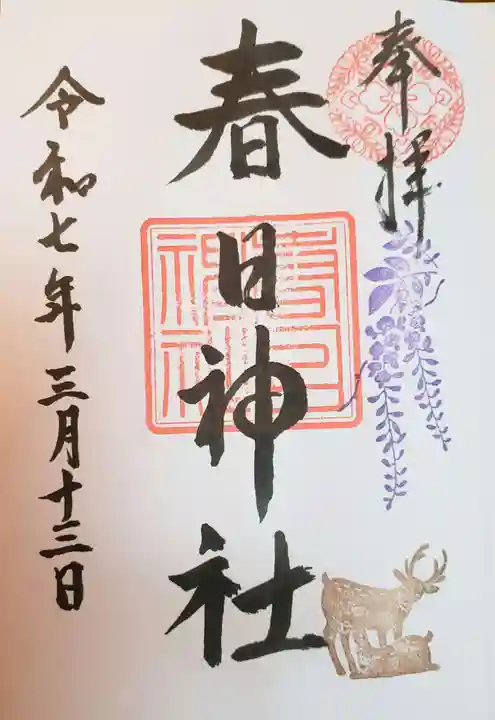 奉拝
春日神社
春日
神社
令和七年三月十三日